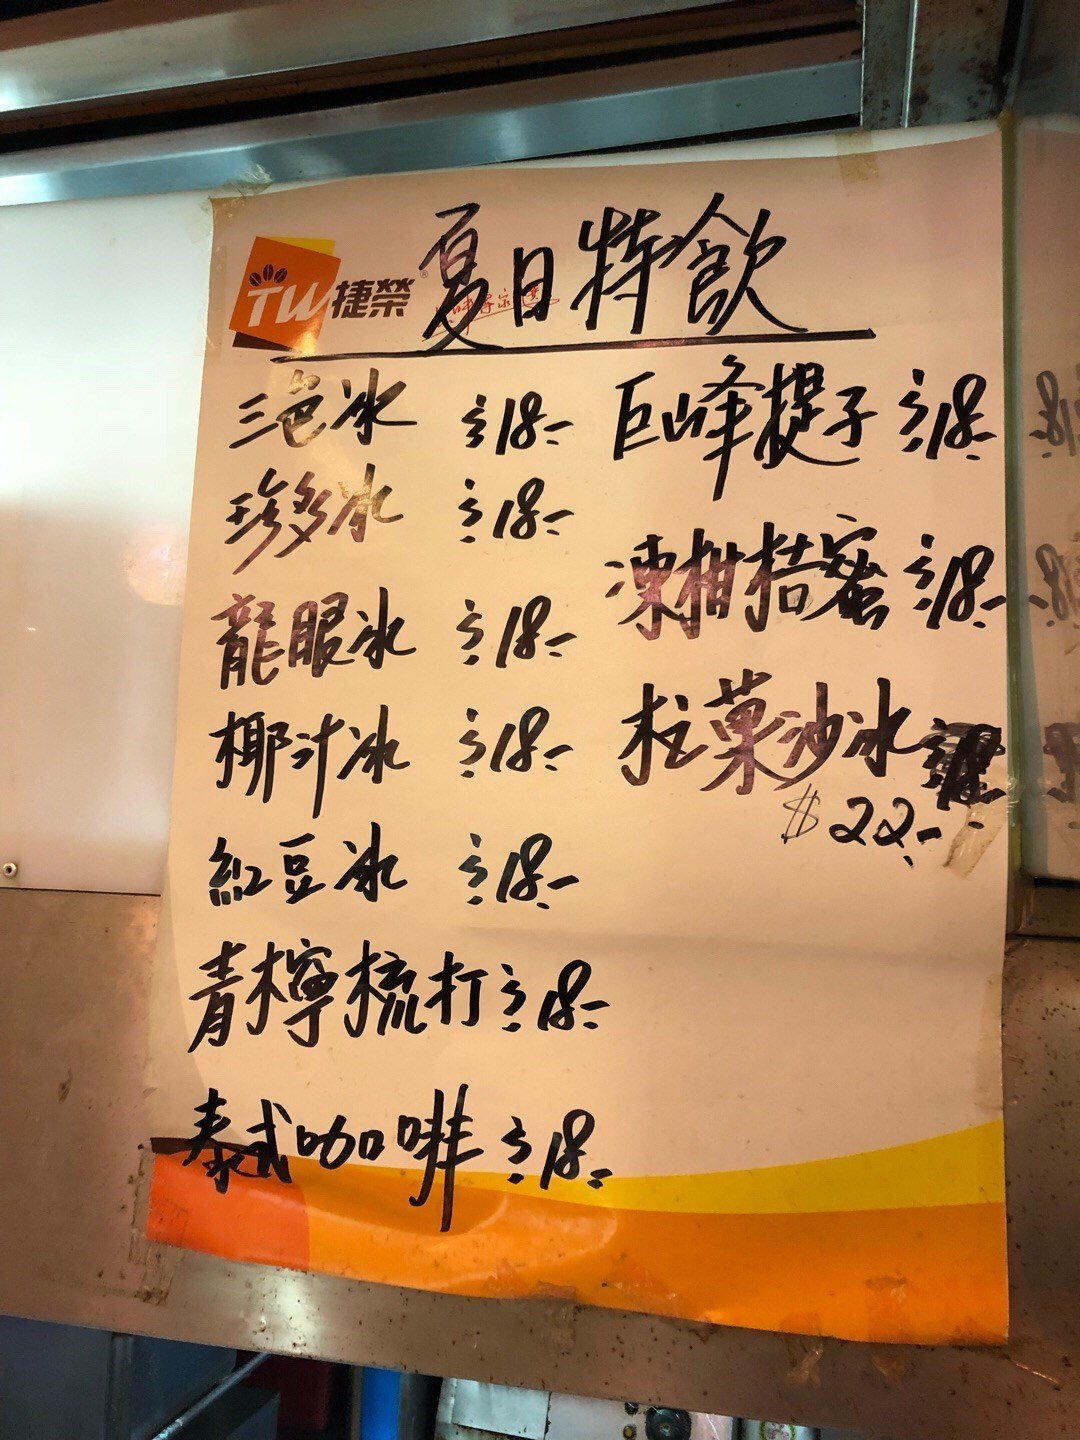 TW 捷榮®
夏日特飲
三色冰 $18.-
珍多冰 $18.-
龍眼冰 $18.-
椰汁冰 $18.-
紅豆冰 $18.-
青檸梳打 $18.-
泰式咖啡 $18.-
巨峰提子 $18.-
凍柑桔蜜 $18.-
杧菓沙冰
$22.-